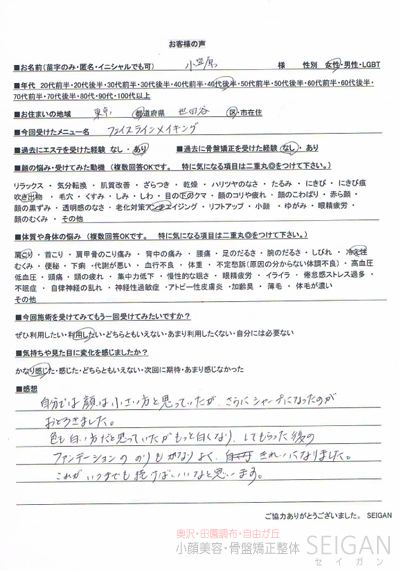 お客様の声
■お名前(苗字のみ・匿名・イニシャルでも可) 小笠原 様 性別 女性・男性・LGBT
■年代 20代前半・20代後半・30代前半・30代後半・40代前半・40代後半・50代前半・50代後半・60代前半・60代後半・
70代前半・70代後半・80代・90代・100代以上
■お住まいの地域 東京 都道府県 世田谷 区・市在住
■今回受けたメニュー名 フェイスラインメイキング
■過去にエステを受けた経験 なし・あり ■過去に骨盤矯正を受けた経験 なし・あり
■顔の悩み・受けてみた動機 (複数回答OKです。 特に気になる項目は二重丸◎をつけて下さい。)
リラックス ・ 気分転換 ・ 肌質改善 ・ ざらつき ・ 乾燥 ・ ハリツヤのなさ ・ たるみ ・ にきび ・ にきび痕
吹き出物 ・ 毛穴 ・ くすみ ・ しみ ・ しわ ・ 目の下のクマ ・ 顔のコリや疲れ ・ 顔のこわばり ・ 赤ら顔 ・
顔の黒ずみ ・ 透明感のなさ ・ 老化対策アンチエイジング ・ リフトアップ ・ 小顔 ・ ゆがみ ・ 眼精疲労 ・
顔のむくみ ・ その他
■体質や身体の悩み (複数回答OKです。 特に気になる項目は二重丸◎をつけて下さい。)
肩こり ・ 首こり ・ 肩甲骨のこり痛み ・ 背中の痛み ・ 腰痛 ・ 足のだるさ ・ 腕のだるさ ・ しびれ ・ 冷え性
むくみ ・ 便秘 ・ 下痢 ・ 代謝が悪い ・ 血行不良 ・ 体重 ・ 不定愁訴(原因の分からない体調不良) ・ 高血圧
低血圧 ・ 頭痛 ・ 頭の疲れ ・ 集中力低下 ・ 慢性的な眠さ ・ 眼精疲労 ・ イライラ ・ 倦怠感ストレス過多 ・
不眠症 ・ 自律神経の乱れ ・ 神経性過敏症 ・アトピー性皮膚炎 ・ 加齢臭 ・ 薄毛 ・ 体毛が濃い
その他
■今回施術を受けてみてもう一回受けてみたいですか？
ぜひ利用したい・利用したい・どちらともいえない・あまり利用したくない・自分には必要ない
■気持ちや見た目に変化を感じましたか？
かなり感じた・感じた・どちらともいえない・次回に期待・あまり感じなかった
■感想
自分では顔は小さい方と思っていたが、さらにシャープになったのが
おどろきました。
色も白い方だと思っていたがもっと白くなり、してもらった後の
ファンデーションののりもかなりよく、きれいになりました。
これがいつまでも続けばいいなと思います。
ご協力ありがとうございました。 SEIGAN
奥沢・田園調布・自由が丘
小顔美容・骨盤矯正整体 SEIGAN
セイガン